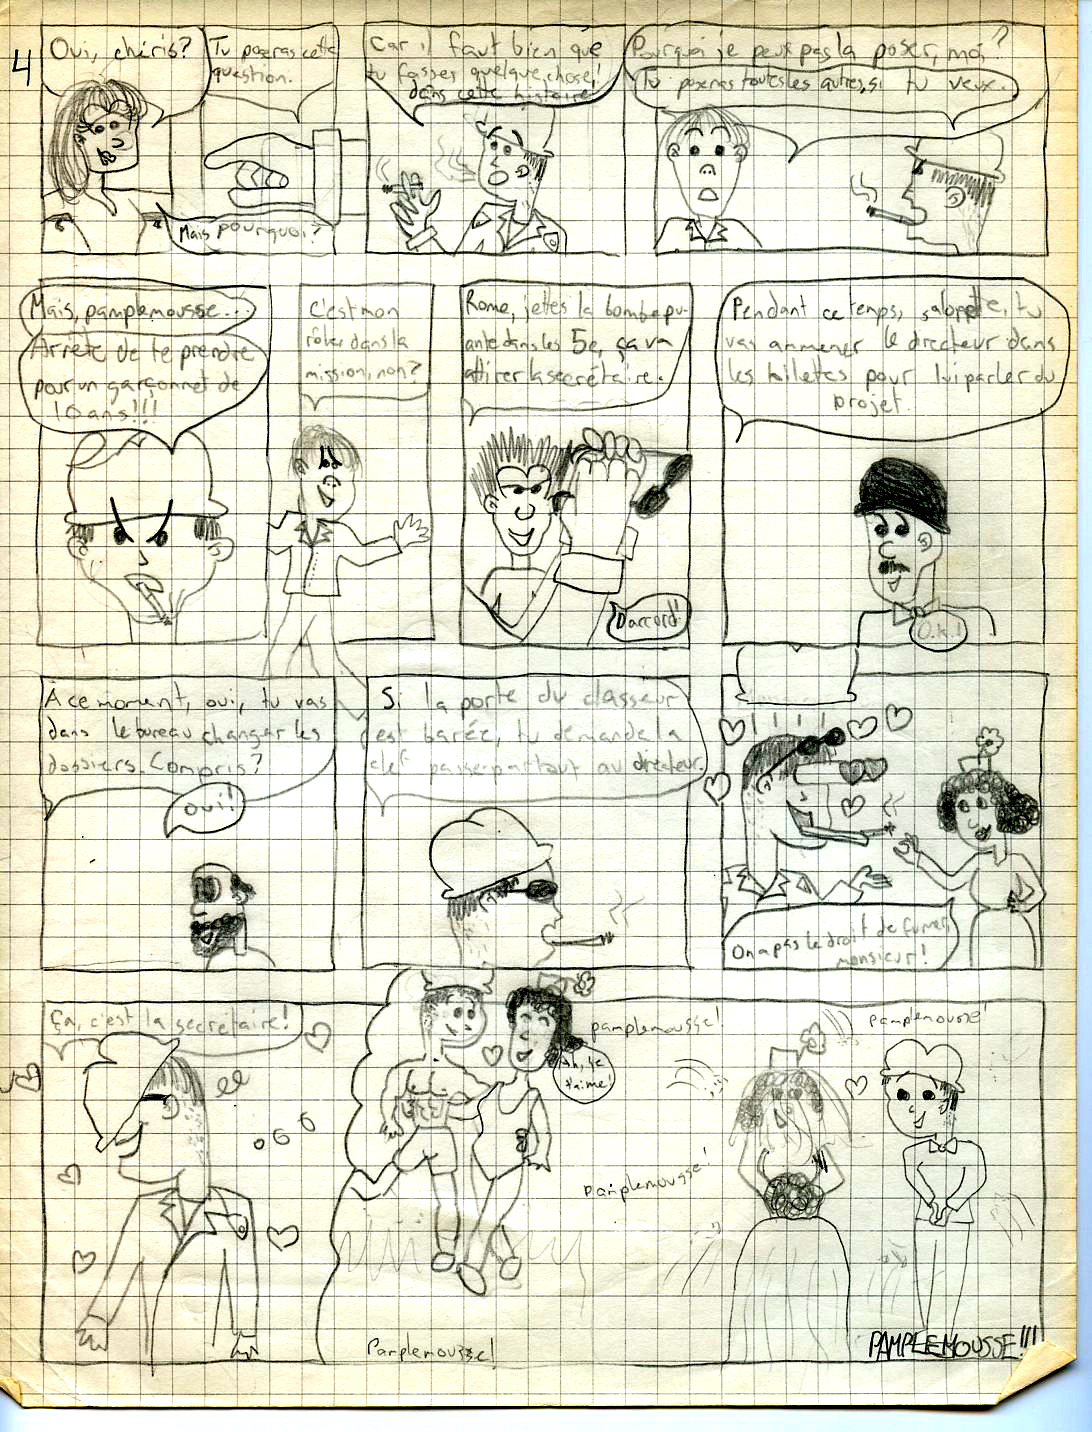 4
Oui, chéris?
Tu poseras cette
question.
Mais pourquoi?
Car il faut bien que
tu fasses quelque chose
dans cette histoire!
Pourquoi je peux pas la poser, moi?
Tu poseras toutes les autres, si tu veux.
Mais, pamplemousse...
Arrête de te prendre
pour un garçonnet de
10 ans!!!
C'est mon
rôle dans la
mission, non?
Rome, jettes la bombe pu-
ante dans les 5e, ça va
attirer la secrétaire.
D'accord!
Pendant ce temps, saloppette, tu
vas ammener le directeur dans
les toilettes pour lui parler du
projet.
O.k.!
À ce moment, oui, tu vas
dans le bureau changer les
dossiers. Compris?
Oui!
Si la porte du classeur
est barée, tu demande la
clef passe-partout au directeur.
On a pas le droit de fumer,
monsieur!
Ça, c'est la secrétaire!
Ah, je
t'aime!
pamplemousse!
pamplemousse!
Pamplemousse!
Pamplemousse!
PAMPLEMOUSSE!!!